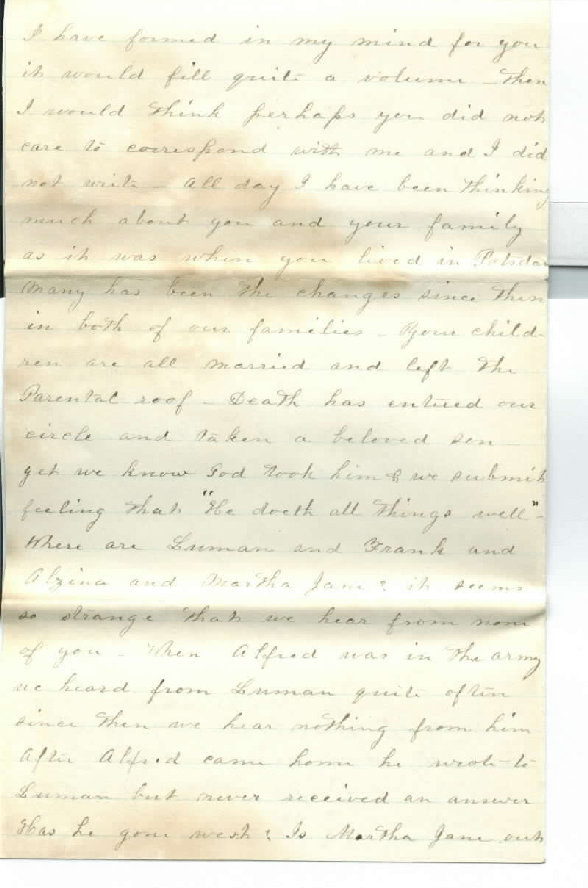 I have formed in my mind for you
it would fill quite a volume - Then
I would think perhaps you did not
care to correspond with me and I did
not write - All day I have been thinking
much about you and your family
as it was when you lived in Potsdam
Many has been the changes since then
in both of our families - Your child-
ren are all married and left the
Parental roof - Death has entered our
circle and taken a beloved son -
yet we know God took him & we submit
feeling that "He doeth all things well" -
Where are Luman and Frank and
Alzina and Martha Jane? it seems
so strange that we hear from none
of you - When Alfred was in the army
we heard from Luman quite often
since then we hear nothing from him
After Alfred came home he wrote to
Luman but never received an answer
Has he gone west? Is Martha Jane out